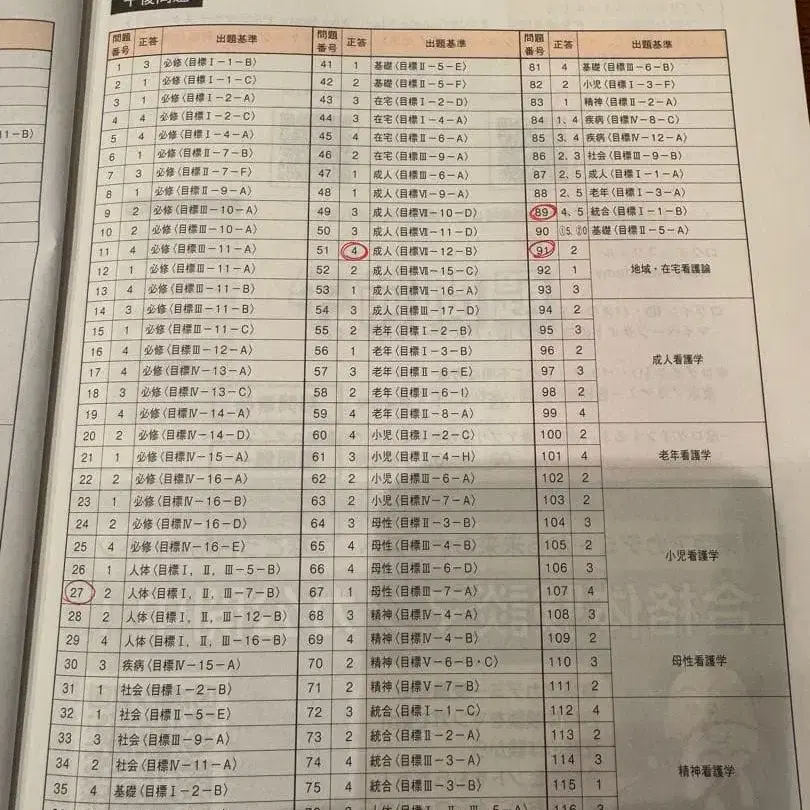 午後問題
問題番号 正答 出題基準
1 3 必修〈目標Ⅰ－1－B〉
2 1 必修〈目標Ⅰ－1－C〉
3 1 必修〈目標Ⅰ－2－A〉
4 4 必修〈目標Ⅰ－2－C〉
5 4 必修〈目標Ⅰ－4－A〉
6 1 必修〈目標Ⅱ－7－B〉
7 3 必修〈目標Ⅱ－7－F〉
8 1 必修〈目標Ⅱ－9－A〉
9 2 必修〈目標Ⅲ－10－A〉
10 2 必修〈目標Ⅲ－10－A〉
11 4 必修〈目標Ⅲ－11－A〉
12 1 必修〈目標Ⅲ－11－A〉
13 4 必修〈目標Ⅲ－11－B〉
14 3 必修〈目標Ⅲ－11－B〉
15 1 必修〈目標Ⅲ－11－C〉
16 4 必修〈目標Ⅲ－12－A〉
17 4 必修〈目標Ⅳ－13－A〉
18 3 必修〈目標Ⅳ－13－C〉
19 4 必修〈目標Ⅳ－14－A〉
20 2 必修〈目標Ⅳ－14－D〉
21 1 必修〈目標Ⅳ－15－A〉
22 2 必修〈目標Ⅳ－16－A〉
23 1 必修〈目標Ⅳ－16－B〉
24 2 必修〈目標Ⅳ－16－D〉
25 4 必修〈目標Ⅳ－16－E〉
26 1 人体〈目標Ⅰ，Ⅱ，Ⅲ－5－B〉
27 2 人体〈目標Ⅰ，Ⅱ，Ⅲ－7－B〉
28 2 人体〈目標Ⅰ，Ⅱ，Ⅲ－12－B〉
29 4 人体〈目標Ⅰ，Ⅱ，Ⅲ－16－B〉
30 3 疾病〈目標Ⅳ－15－A〉
31 1 社会〈目標Ⅰ－2－B〉
32 1 社会〈目標Ⅱ－5－E〉
33 3 社会〈目標Ⅲ－9－A〉
34 2 社会〈目標Ⅳ－11－A〉
35 4 基礎〈目標Ⅰ－2－B〉
問題番号 正答 出題基準
41 1 基礎〈目標Ⅱ－5－E〉
42 2 基礎〈目標Ⅱ－5－F〉
43 3 在宅〈目標Ⅰ－2－D〉
44 3 在宅〈目標Ⅰ－4－A〉
45 4 在宅〈目標Ⅱ－6－A〉
46 2 在宅〈目標Ⅲ－9－A〉
47 1 成人〈目標Ⅲ－6－A〉
48 1 成人〈目標Ⅵ－9－A〉
49 3 成人〈目標Ⅶ－10－D〉
50 3 成人〈目標Ⅶ－11－D〉
51 4 成人〈目標Ⅶ－12－B〉
52 2 成人〈目標Ⅶ－15－C〉
53 1 成人〈目標Ⅶ－16－A〉
54 3 成人〈目標Ⅲ－17－D〉
55 2 老年〈目標Ⅰ－2－B〉
56 1 老年〈目標Ⅰ－3－B〉
57 3 老年〈目標Ⅱ－6－E〉
58 2 老年〈目標Ⅱ－6－I〉
59 4 老年〈目標Ⅱ－8－A〉
60 4 小児〈目標Ⅰ－2－C〉
61 3 小児〈目標Ⅱ－4－H〉
62 2 小児〈目標Ⅲ－6－A〉
63 2 小児〈目標Ⅳ－7－A〉
64 3 母性〈目標Ⅱ－3－B〉
65 4 母性〈目標Ⅲ－4－B〉
66 4 母性〈目標Ⅲ－6－D〉
67 1 母性〈目標Ⅲ－7－A〉
68 3 精神〈目標Ⅳ－4－A〉
69 4 精神〈目標Ⅳ－4－B〉
70 2 精神〈目標Ⅴ－6－B・C〉
71 2 精神〈目標Ⅴ－7－B〉
72 3 統合〈目標Ⅰ－1－C〉
73 2 統合〈目標Ⅱ－2－A〉
74 4 統合〈目標Ⅲ－3－A〉
75 4 統合〈目標Ⅲ－3－B〉
問題番号 正答 出題基準
81 4 基礎〈目標Ⅲ－6－B〉
82 2 小児〈目標Ⅰ－3－F〉
83 1 精神〈目標Ⅱ－2－A〉
84 1、4 疾病〈目標Ⅳ－8－C〉
85 3、4 疾病〈目標Ⅳ－12－A〉
86 2、3 社会〈目標Ⅲ－9－B〉
87 2、5 成人〈目標Ⅰ－1－A〉
88 2、5 老年〈目標Ⅰ－3－A〉
89 4、5 統合〈目標Ⅰ－1－B〉
90 ①5、②0 基礎〈目標Ⅱ－5－A〉
91 2
92 1 地域・在宅看護論
93 3
94 2
95 3
96 2 成人看護学
97 3
98 2
99 4
100 2
101 4 老年看護学
102 2
103 2
104 3
105 2 小児看護学
106 3
107 4
108 3
109 2
110 3 母性看護学
111 2
112 4
113 2
114 3 精神看護学
115 1
11－B〉